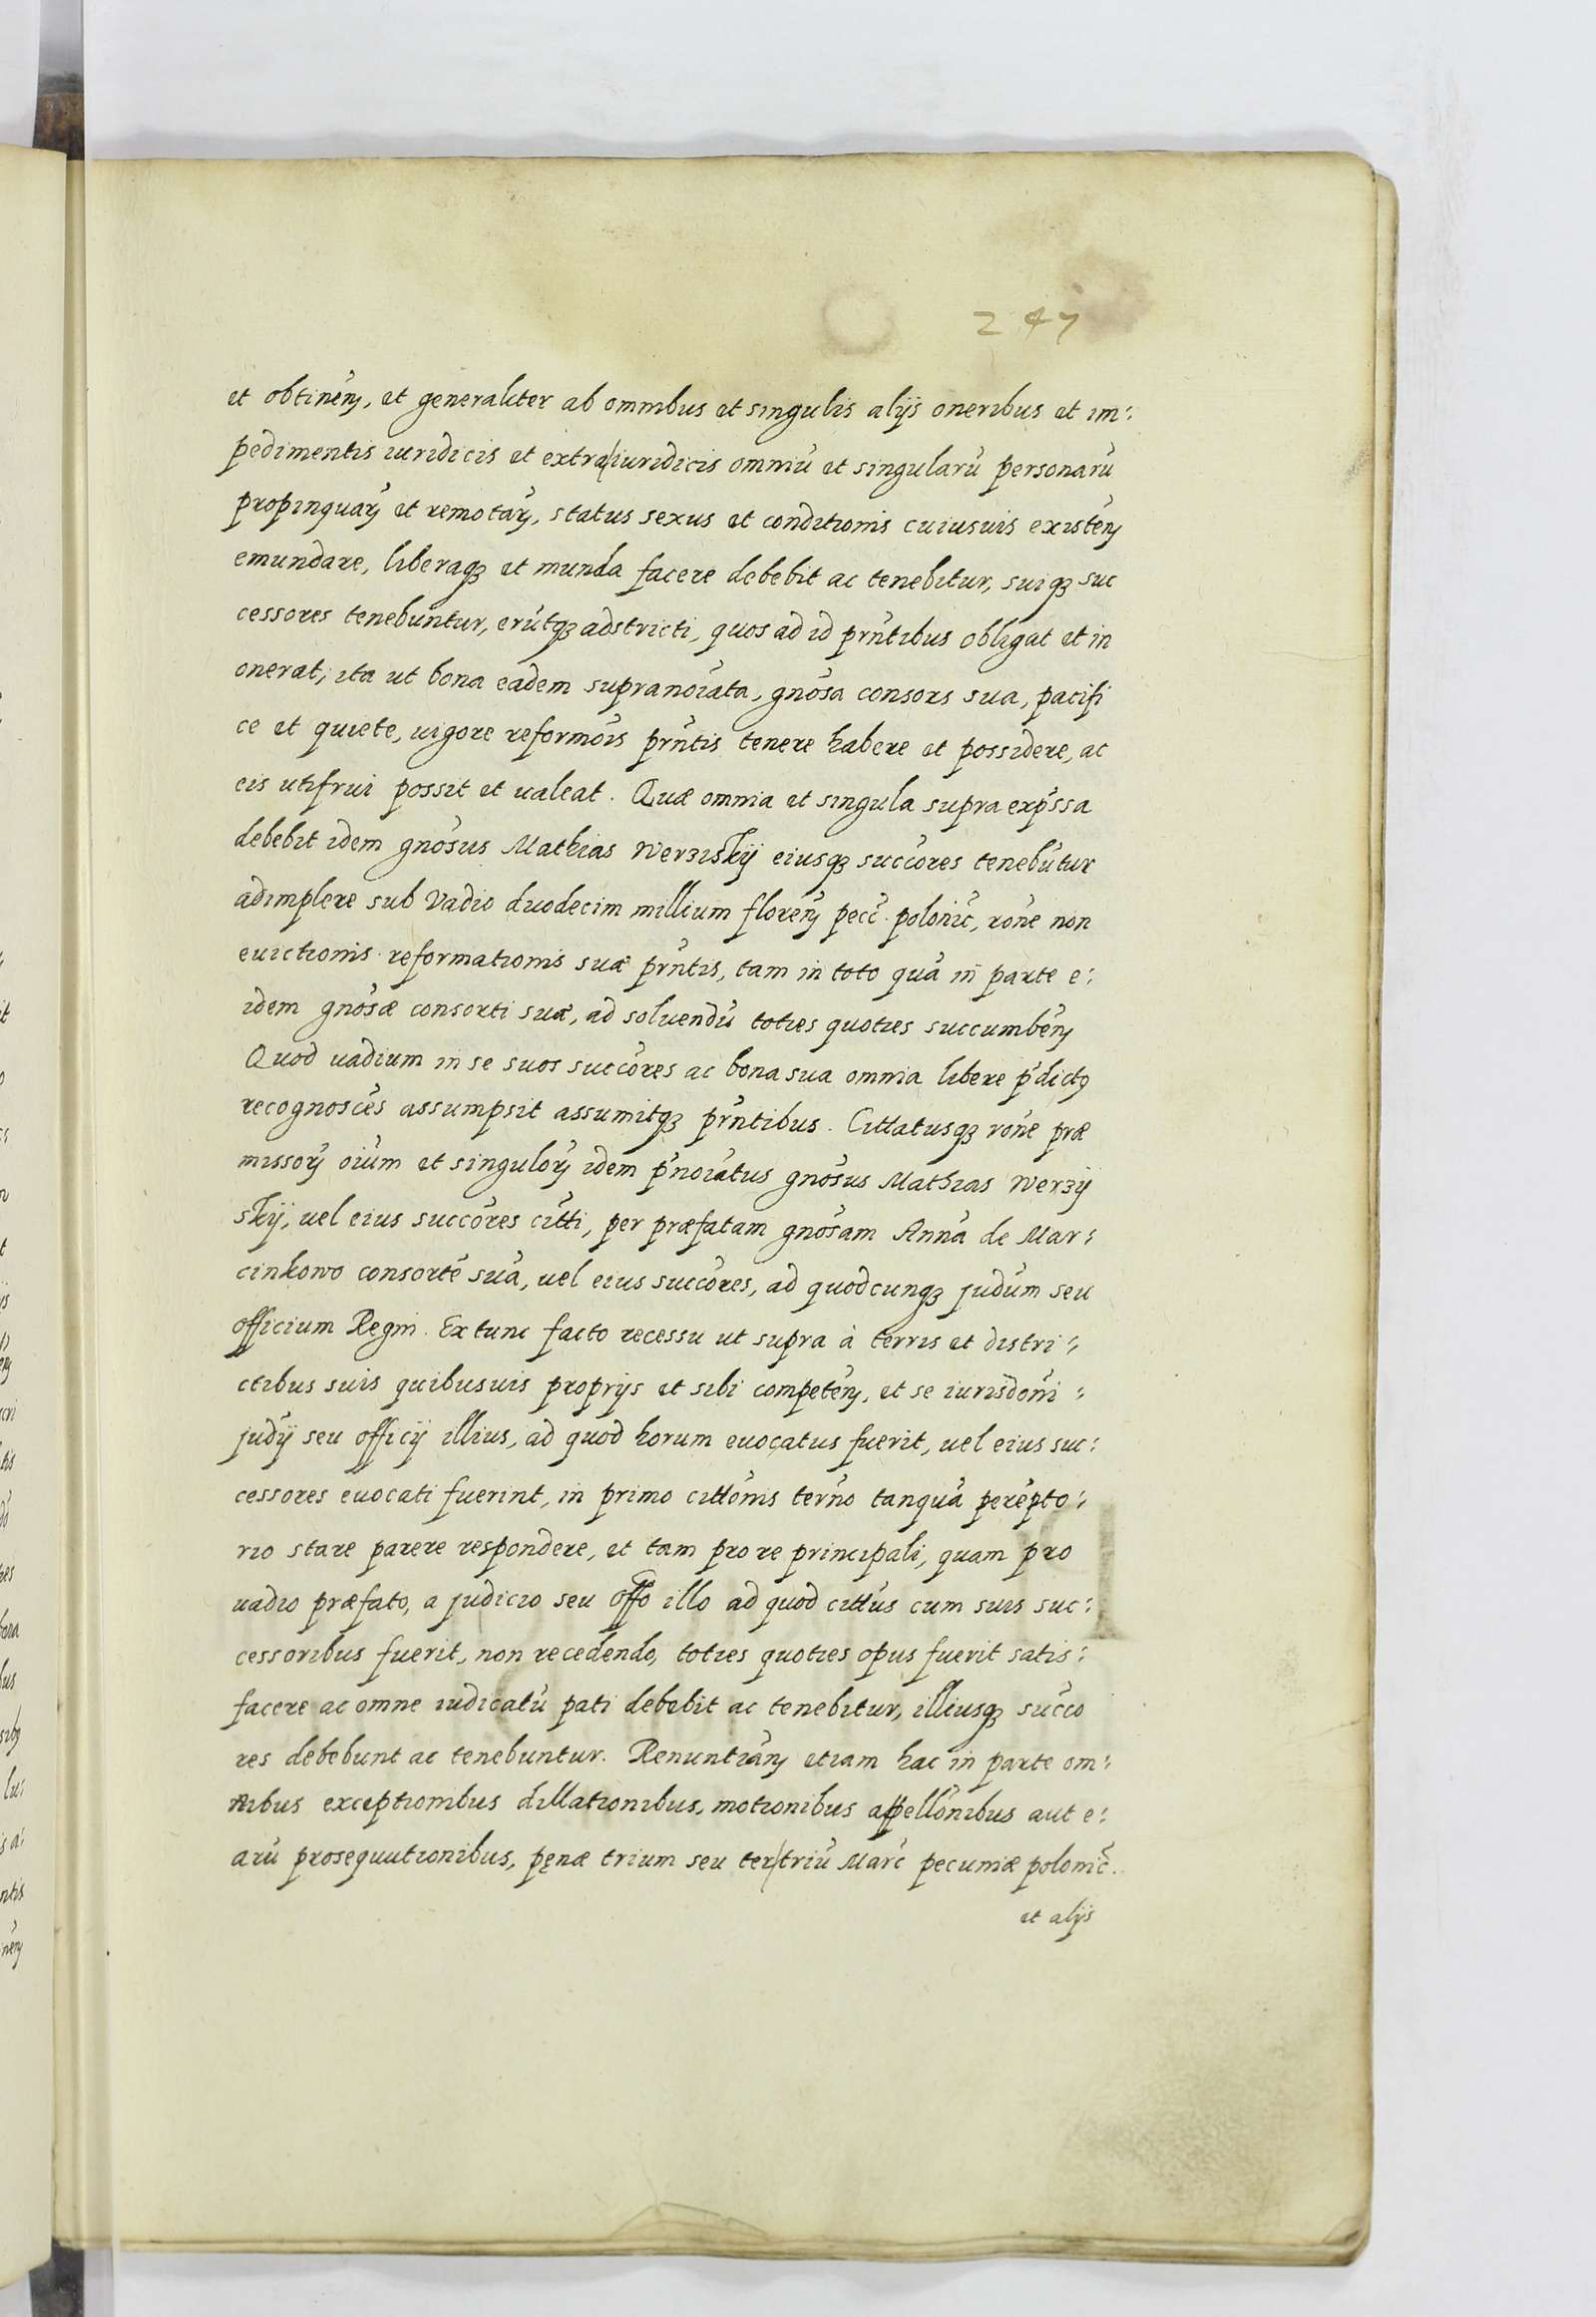 247
et obtineñ, et generaliter ab omnibus et singulis alijs oneribus et im:
pedimentis iuridicis et extra/iuridicis omniũ et singularũ personarũ
propinquarꝝ et remotarꝝ, status sexus et conditionis cuiusuis existeñ
emundare, liberaqꝫ et munda facere debebit ac tenebitur, suiqꝫ suc
cessores tenebuntur, erũtqꝫ adstricti, quos ad id prñtibus obligat et in
onerat, ita ut bona eadem supranoĩata, gnõsa consors sua, pacifi
ce et quiete, uigore reformõis prñtis tenere habere et possidere, ac
eis utifrui possit et ualeat. Quæ omnia et singula supra exp̃ssa
debebit idem gnõsus Mathias Werziskij eiusqꝫ succõres tenebũtur
adimplere sub Vadio duodecim millium floreñ pecc̃. poloñic̃, rõne non
euictionis reformationis suæ prñtis, tam in toto quã in parte e:
idem gnõsæ consorti suæ, ad soluendũ toties quoties succumbeñ
Quod uadium in se suos succõres ac bona sua omnia libere p̃dictꝯ
recognoscẽs assumpsit assumitqꝫ prñtibus. Cittatusqꝫ rõne præ
missorꝝ oĩum et singulorꝝ idem p̃noĩatus gnõsus Mathias Werzij
skij, uel eius succõres cittĩ, per præfatam gnõsam Annã de Mar:
cinkowo consortẽ suã, uel eius succõres, ad quodcunqꝫ judũm seu
officium Regni. Extunc facto recessu ut supra à terris et distri:
ctibus suis quibusuis proprijs et sibi competeñ, et se iurisdõni:
judĩj seu officij illius, ad quod horum euocatus fuerit, uel eius suc:
cessores euocati fuerint, in primo cittõnis terñno tanquã perẽpto:
rio stare parere respondere, et tam pro re principali, quam pro
uadio præfato, a judicio seu offõ illo ad quod citt̃us cum suis suc:
cessoribus fuerit, non recedendo, toties quoties opus fuerit satis:
facere ac omne iudicatũ pati debebit ac tenebitur, illiusqꝫ succõ
res debebunt ac tenebuntur. Renuntiañ etiam hac in parte om:
nibus exceptionibus dillationibus, motionibus appellõnibus aut e:
arũ prosequutionibus, pęnæ trium seu ter/triũ Marc̃ pecuniæ polonic̃.
et alijs